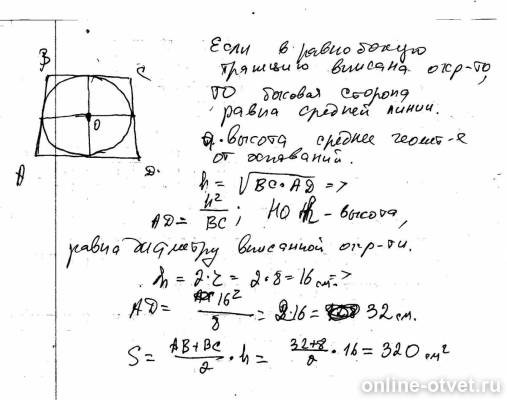 Если в равнобокую
трапецию вписана окр-то,
то боковая сторона
равна средней линии.
высота среднее геомет-е
от оснований.
h = √BC·AD =>
AD = h²/BC; но h - высота,
равна диаметру вписанной окр-ти.
h = 2·r = 2·8 = 16 см. =>
AD = 16²/8 = 2·16 = 32 см.
S = AB+BC/2 · h = 32+8/2 · 16 = 320 см²
B
C
O
A
D
online-otvet.ru